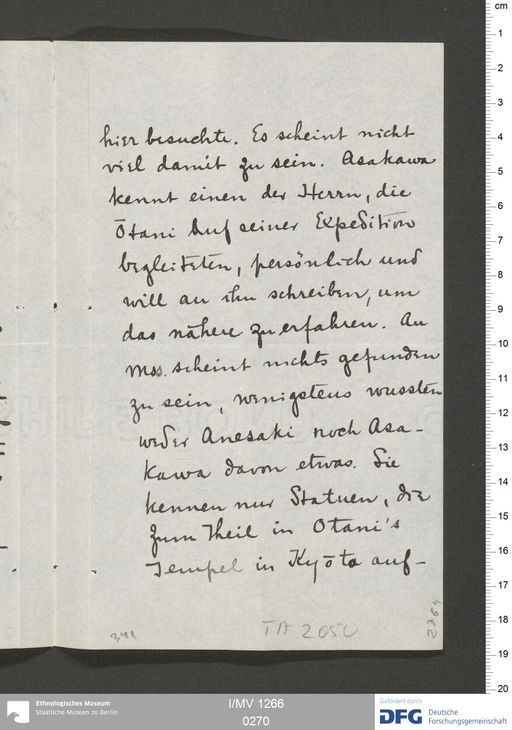 hier besuchte. Es scheint nicht
viel damit zu sein. Asakawa
kennt einen der Herrn, die
Ōtani auf seiner Expedition
begleiteten, persönlich und
will an ihn schreiben, um
das nähere zu erfahren. An
Mss. scheint nichts gefunden
zu sein, wenigstens wussten
weder Anesaki noch Asa-
kawa davon etwas. Sie
kennen nur Statuen, die
zum Theil in Otani's
Tempel in Kyōto auf-
341
TA 2050
2764
cm
1
2
3
4
5
6
7
8
9
10
11
12
13
14
15
16
17
18
19
20
Ethnologisches Museum
Staatliche Museen zu Berlin
I/MV 1266
0270
Gefördert durch
DFG Deutsche
Forschungsgemeinschaft